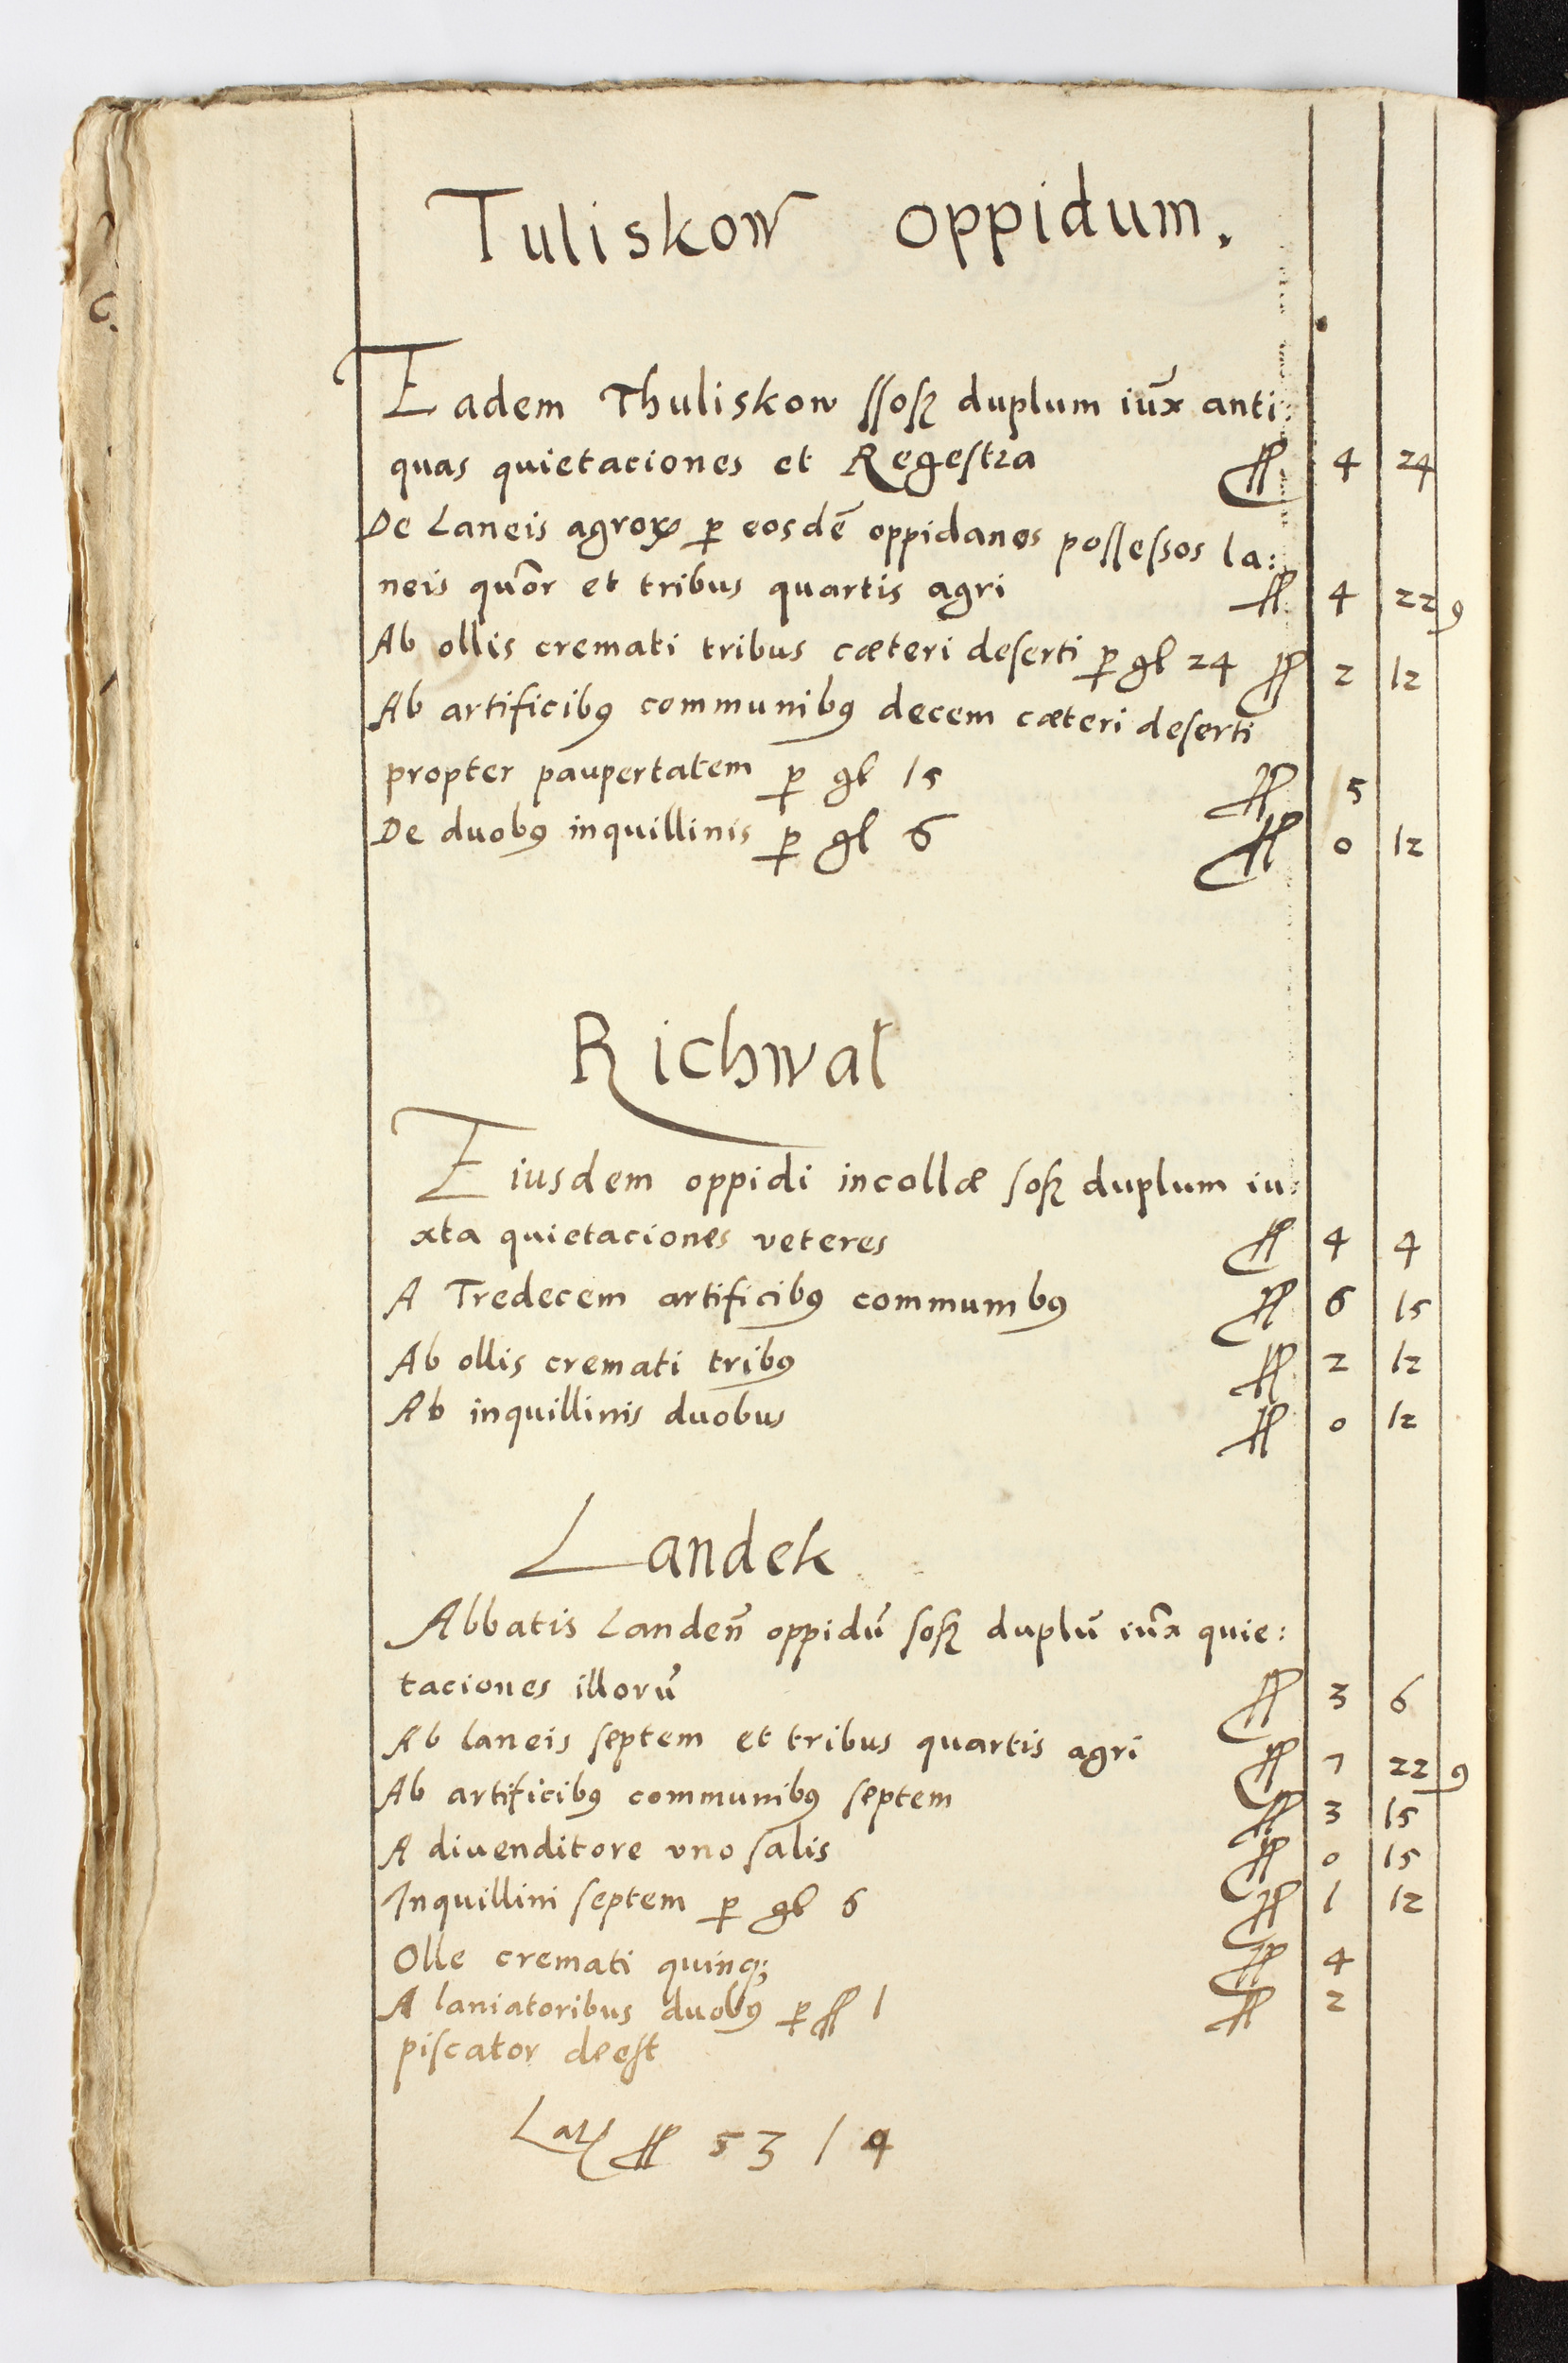 Tuliskow oppidum.
C.
Eadem Thuliskow ssosz duplum iux̃ anti:
quas quietaciones et Regestra ff 4 24
De Laneis agroꝝ ꝑ eosdẽ oppidanos possessos la:
neis quõr et tribus quartis agri ff 4 22 9
Ab ollis cremati tribus cæteri deserti ꝑ gl 24 ff 2 12
Ab artificibꝰ communibꝰ decem cæteri deserti
propter paupertatem ꝑ gl 15 ff 5
De duobꝰ inquillinis ꝑ gl 6 ff 0 12
Richwal
Eiusdem oppidi incollæ sosz duplum iu:
xta quietaciones veteres ff 4 4
A Tredecem artificibꝰ communibꝰ ff 6 15
Ab ollis cremati tribꝰ ff 2 12
Ab inquillinis duobus ff 0 12
Landek
Abbatis Landen̄ oppidũ sosz duplũ iux̃ quie:
taciones illorũ ff 3 6
Ab laneis septem et tribus quartis agri ff 7 22 9
Ab artificibꝰ communibꝰ septem ff 3 15
A diuenditore vno salis ff 0 15
Inquillini septem ꝑ gl 6 ff 1 12
Olle cremati quinq; ff 4
A laniatoribus duobꝰ ꝑ ff 1 ff 2
piscator deest
Latꝰ ff 53 / 4